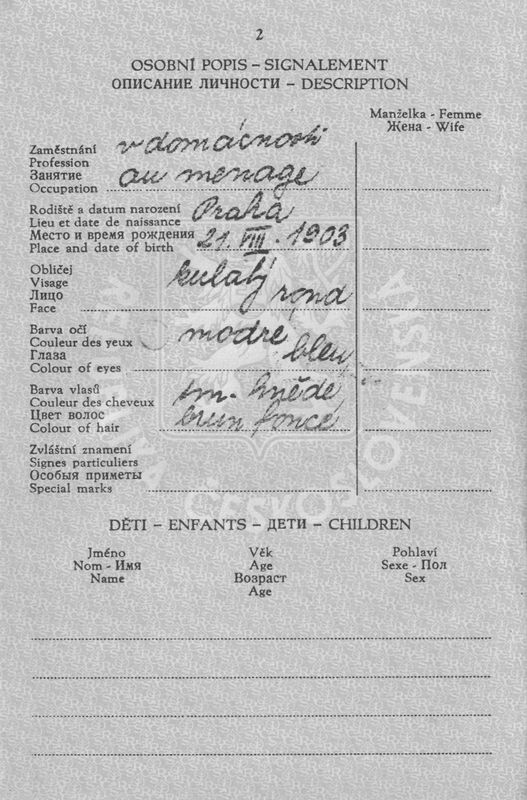 2
OSOBNÍ POPIS – SIGNALEMENT
ОПИСАНИЕ ЛИЧНОСТИ – DESCRIPTION
Manželka - Femme
Жена - Wife
Zaměstnání
Profession
Занятие
Occupation
v domácnosti
au menage
Rodiště a datum narození
Lieu et date de naissance
Место и время рождения
Place and date of birth
Praha
21. VIII. 1903
Obličej
Visage
Лицо
Face
kulatý
rond
Barva očí
Couleur des yeux
Глаза
Colour of eyes
modré
bleu
Barva vlasů
Couleur des cheveux
Цвет волос
Colour of hair
tm. hnědé
brun foncé
Zvláštní znamení
Signes particuliers
Особыя приметы
Special marks
REPUBLIKA ČESKOSLOVENSKÁ
DĚTI – ENFANTS – ДЕТИ – CHILDREN
Jméno
Nom - Имя
Name
Věk
Age
Возраст
Age
Pohlaví
Sexe - Пол
Sex